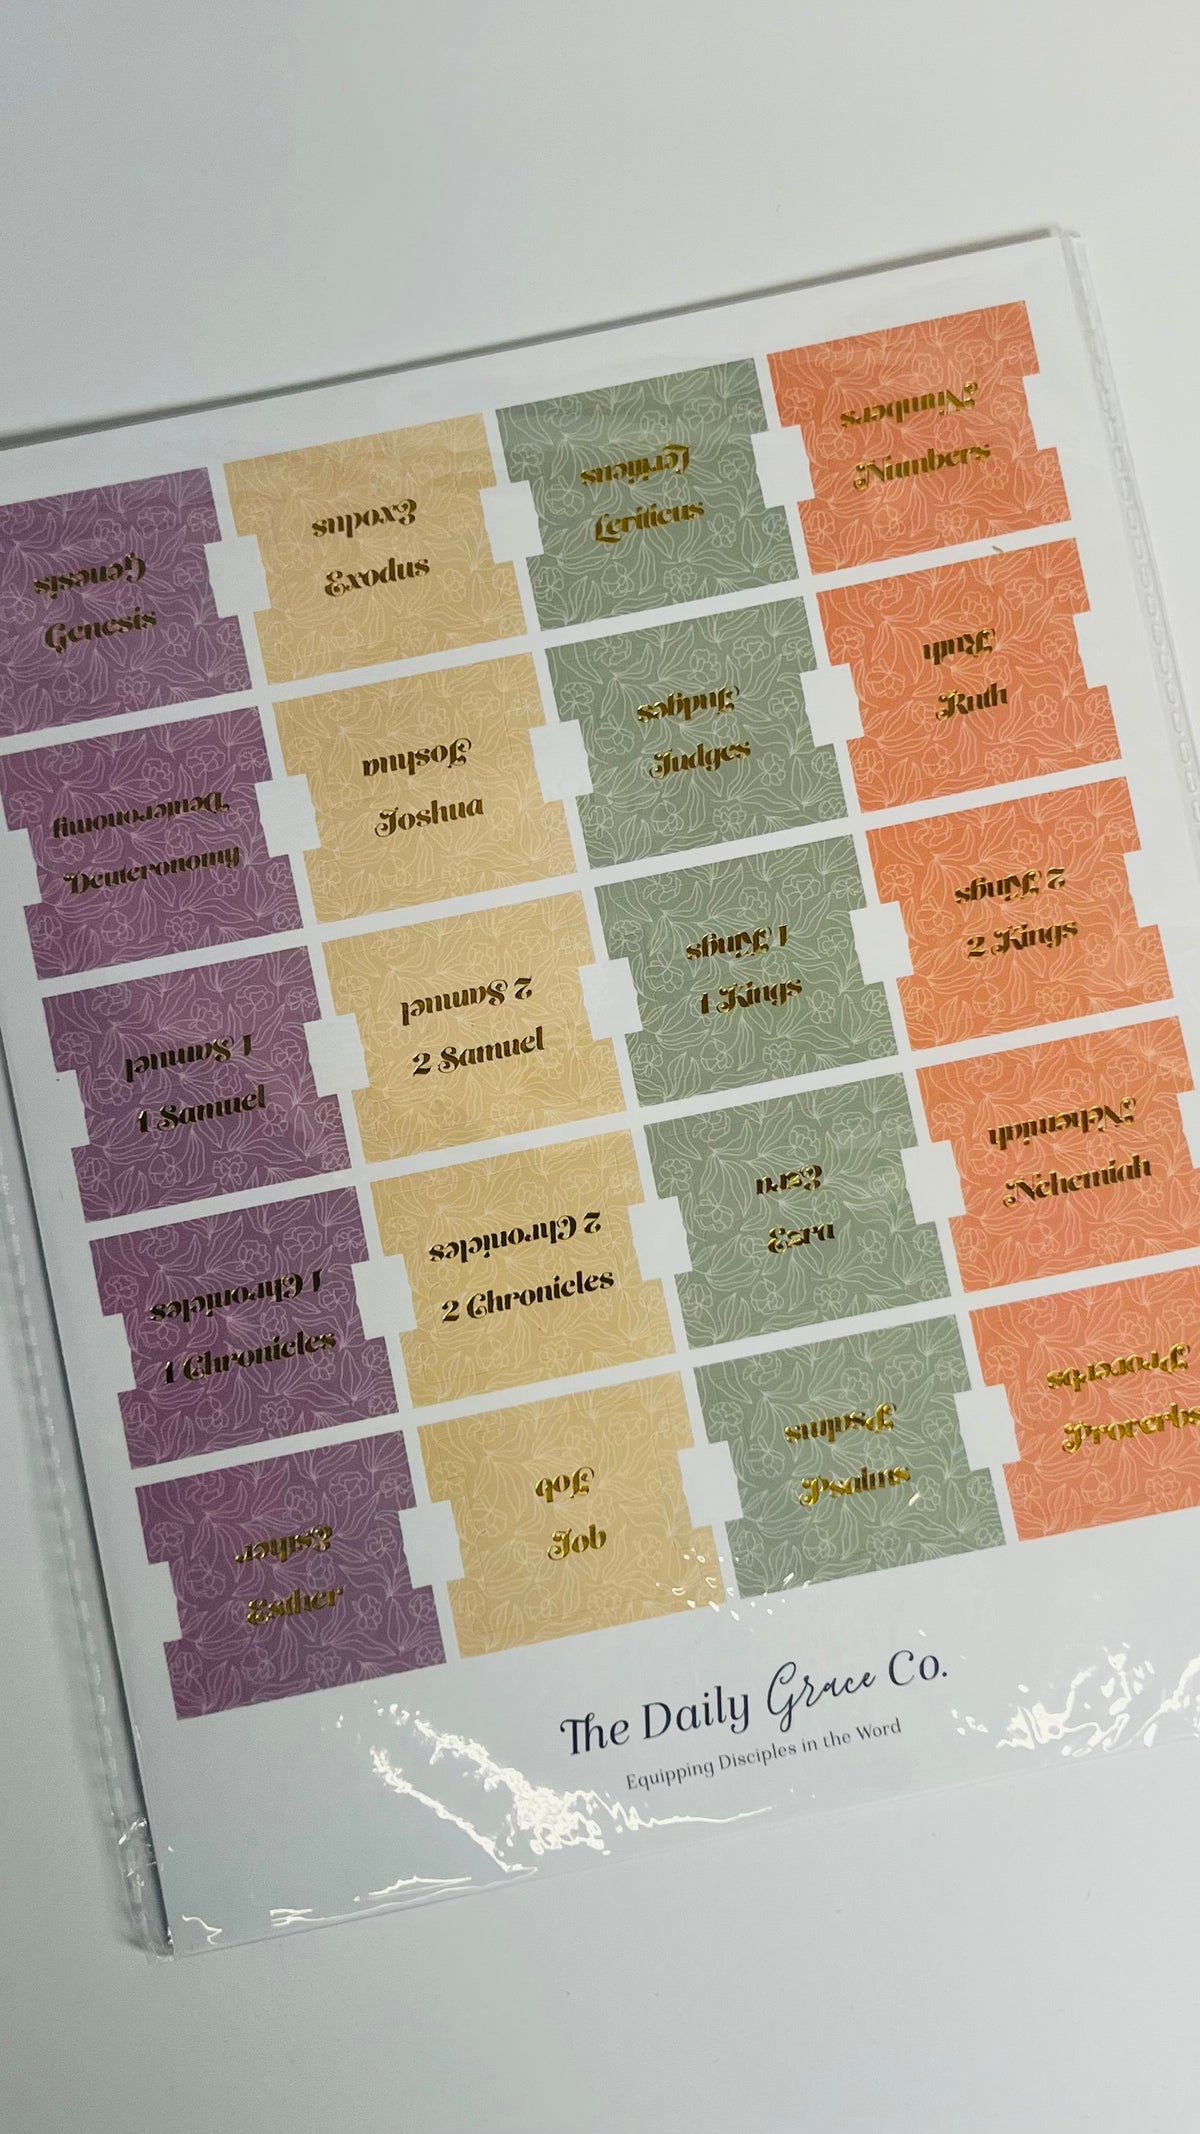 Genesis
Genesis
Exodus
Exodus
Leviticus
Leviticus
Numbers
Numbers
Deuteronomy
Deuteronomy
Joshua
Joshua
Judges
Judges
Ruth
Ruth
1 Samuel
1 Samuel
2 Samuel
2 Samuel
1 Kings
1 Kings
2 Kings
2 Kings
1 Chronicles
1 Chronicles
2 Chronicles
2 Chronicles
Ezra
Ezra
Nehemiah
Nehemiah
Esther
Esther
Job
Job
Psalms
Psalms
Proverbs
Proverbs
The Daily Grace Co.
Equipping Disciples in the Word